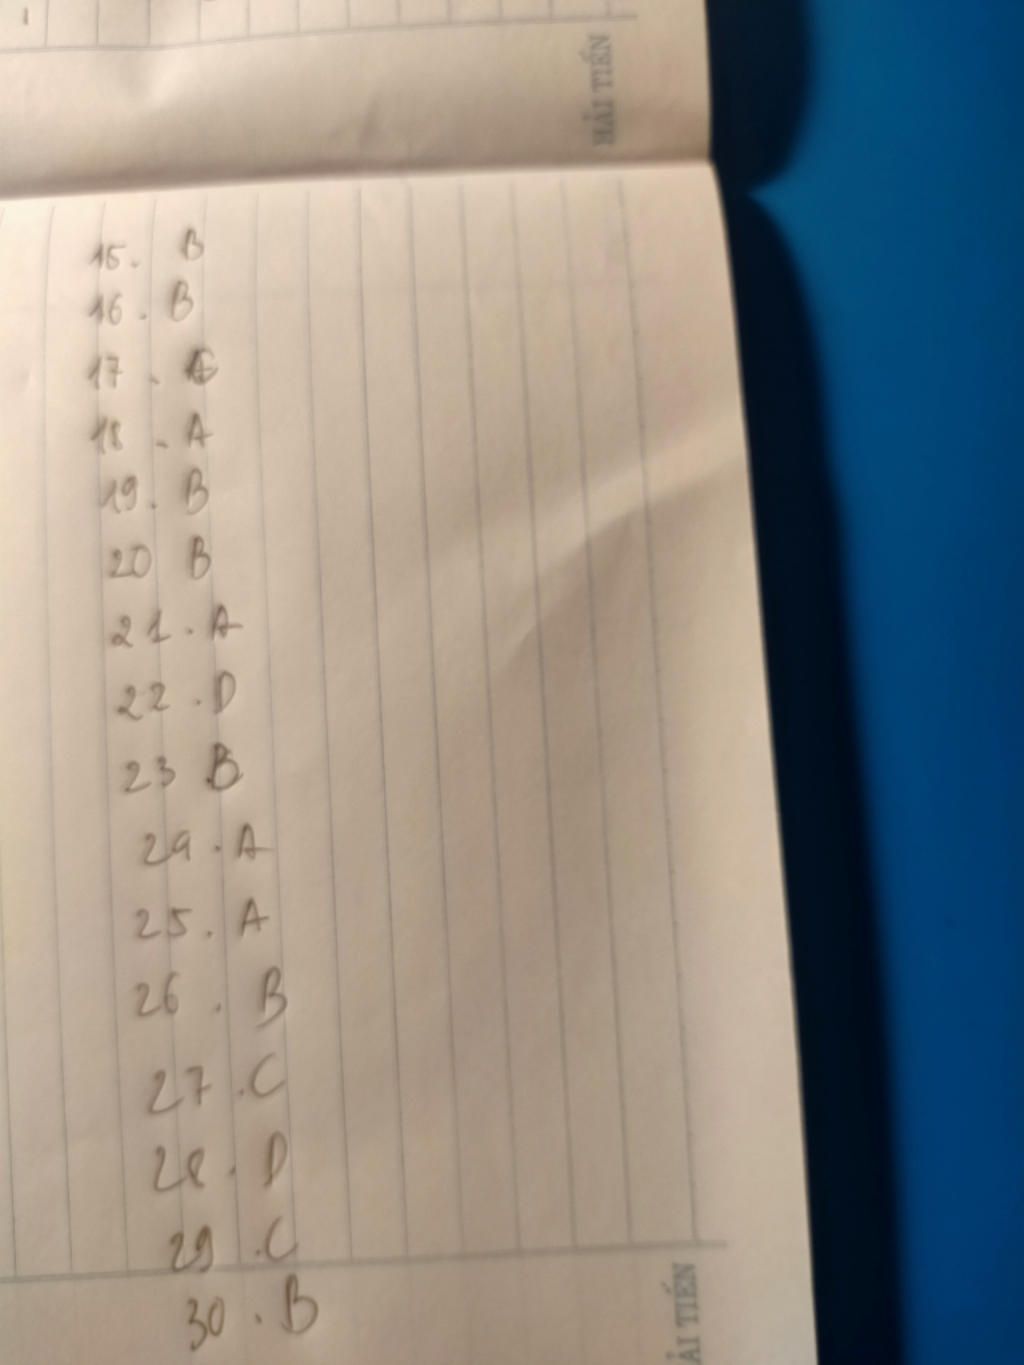 HẢI TIẾN
15. B
16. B
17.
18. A
19. B
20 B
21. A
22. D
23 B
24. A
25. A
26. B
27. C
28. D
29. C
30. B
ẢI TIẾN